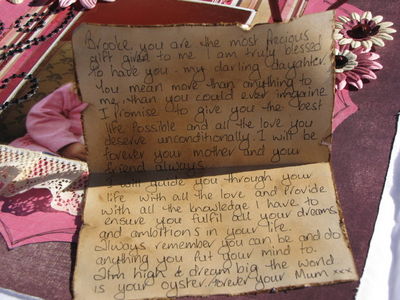 Brooke, you are the most precious
gift given to me. I am truly blessed
to have you. my darling daughter.
You mean more than anything to
me, than you could ever imagine
I promise to give you the best
life possible and all the love you
deserve unconditionally. I will be
forever your mother and your
friend always.
I will guide you through your
life with all the love and provide
with all the knowledge I have to
ensure you fulfil all your dreams
and ambitions in your life.
always remember you can be and do
anything you put your mind to.
Aim high & dream big the world
is your oyster. forever your Mum xxx